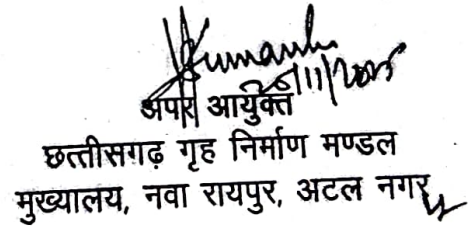 अपर आयुक्त
छत्तीसगढ़ गृह निर्माण मण्डल
मुख्यालय, नवा रायपुर, अटल नगर